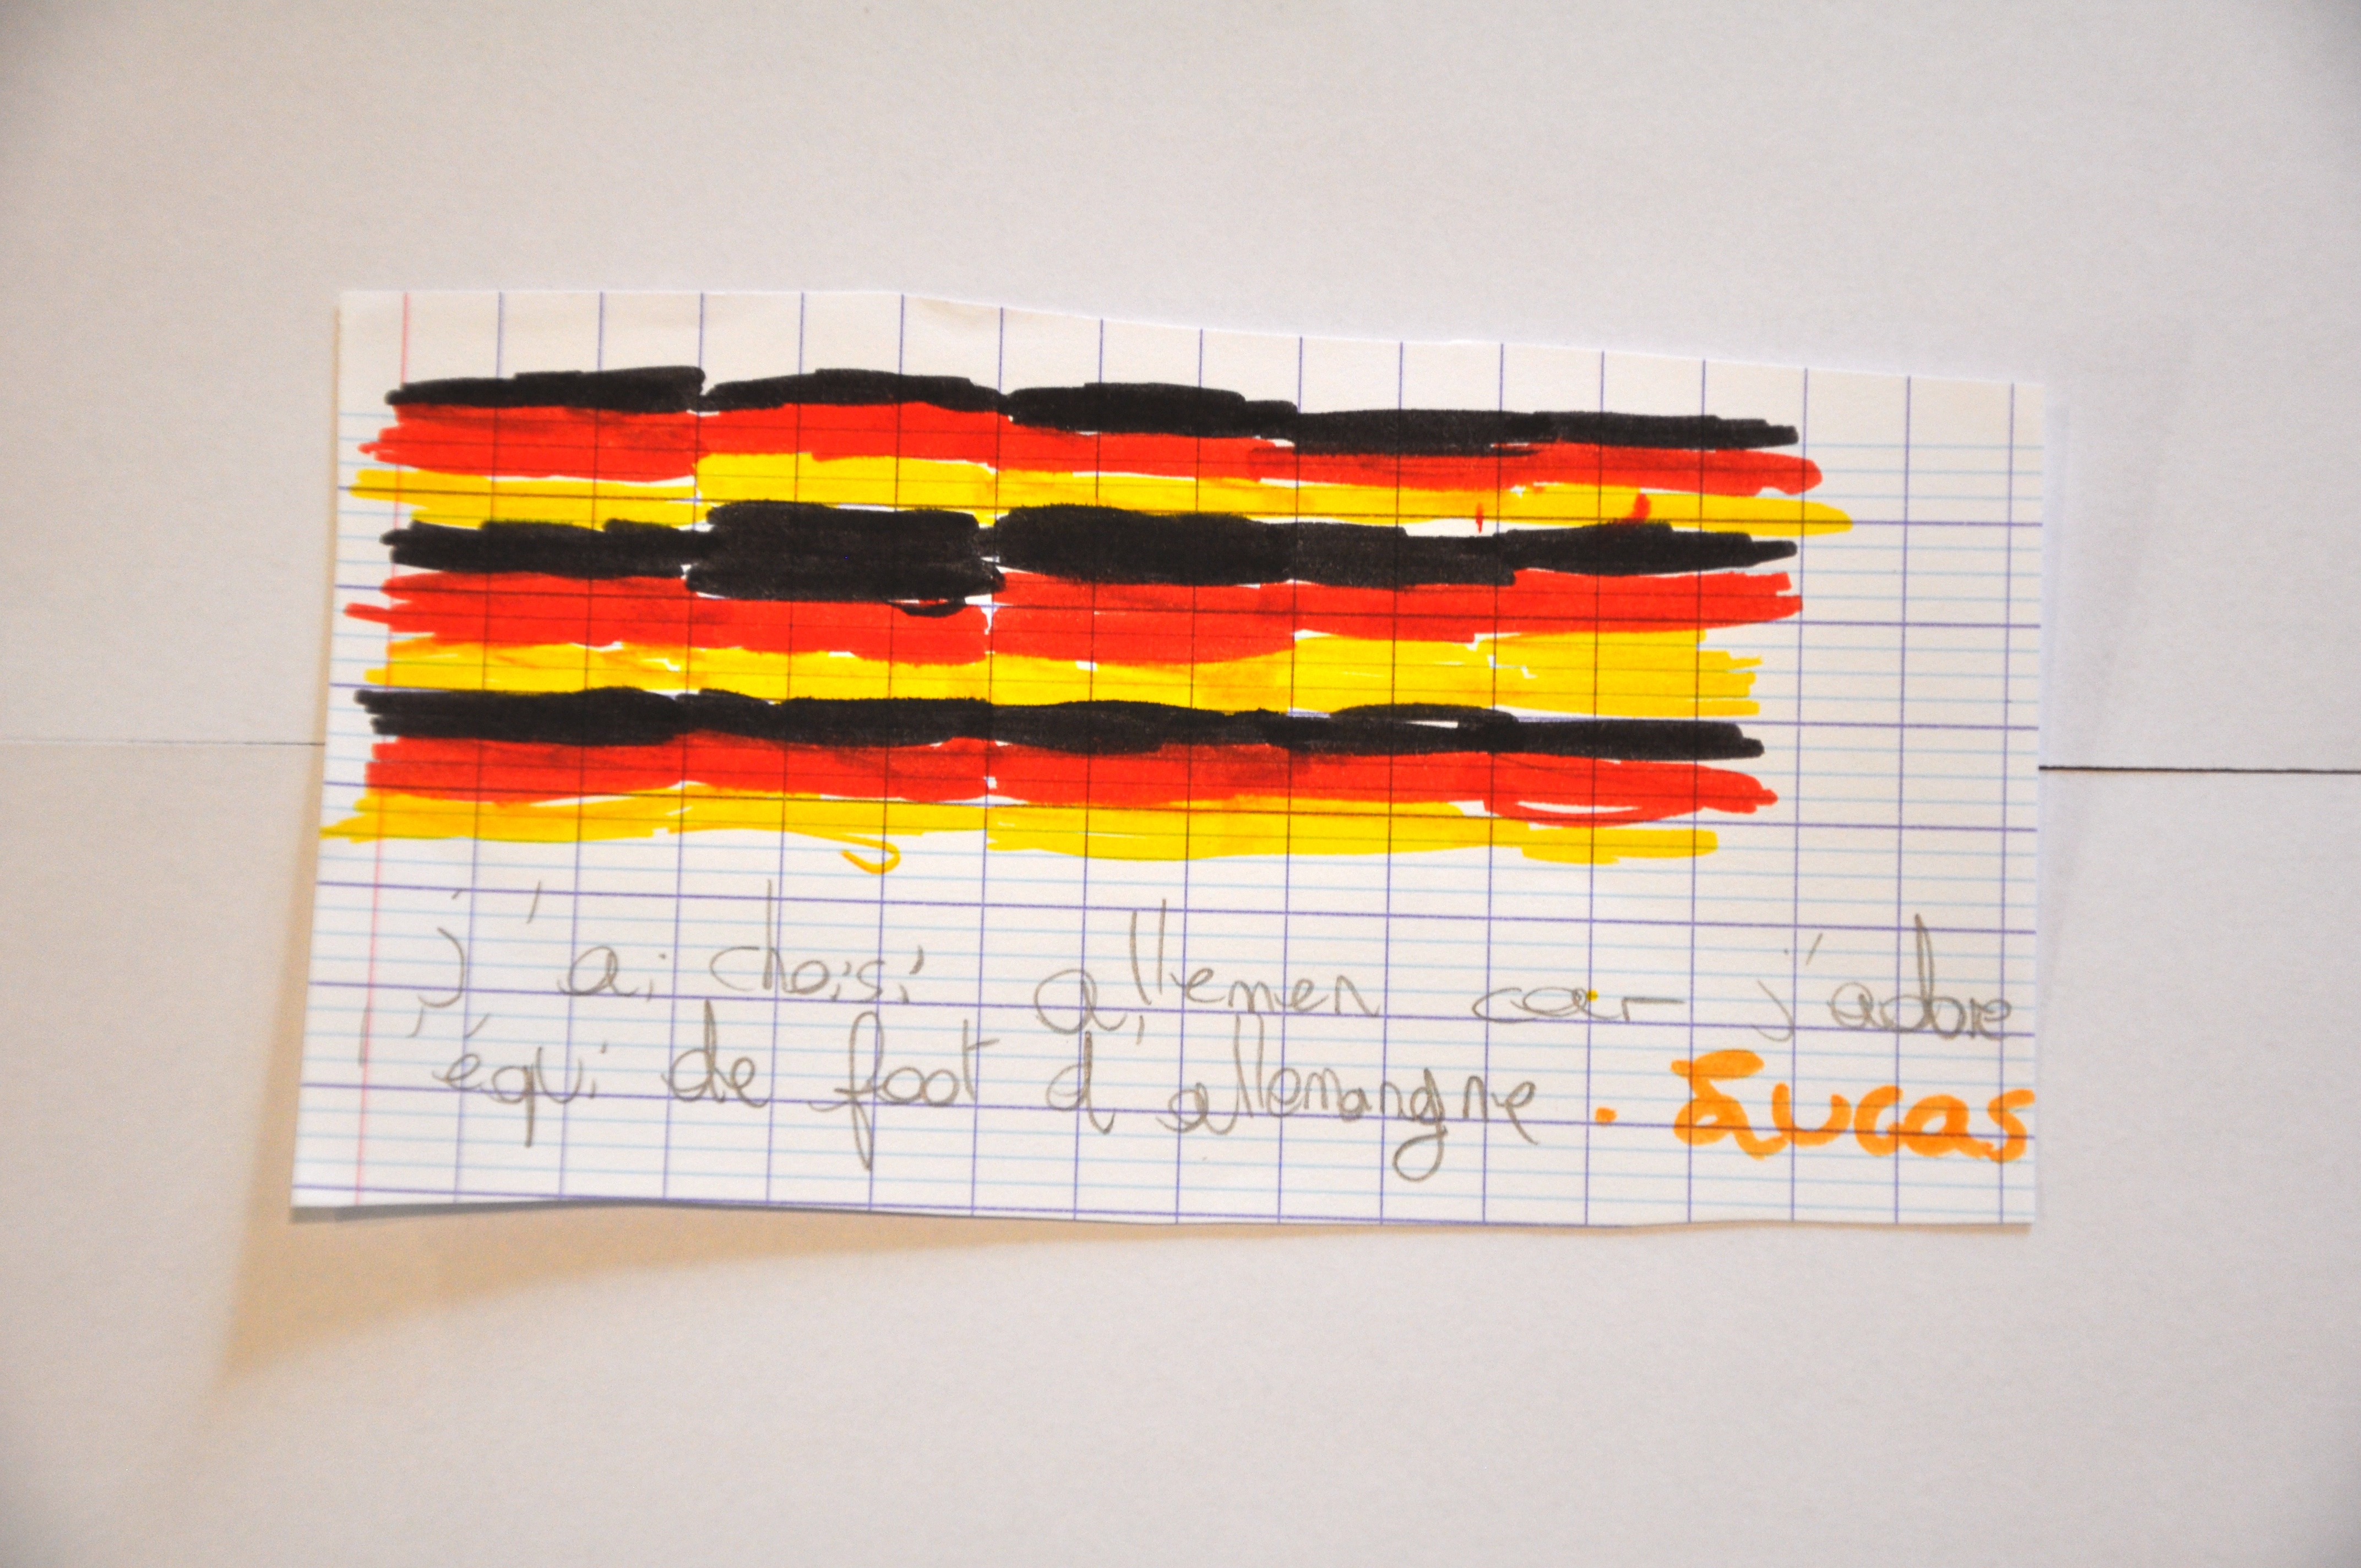 j'ai choisi allemen car j'adore
l'équi de foot d'allemangne. Lucas